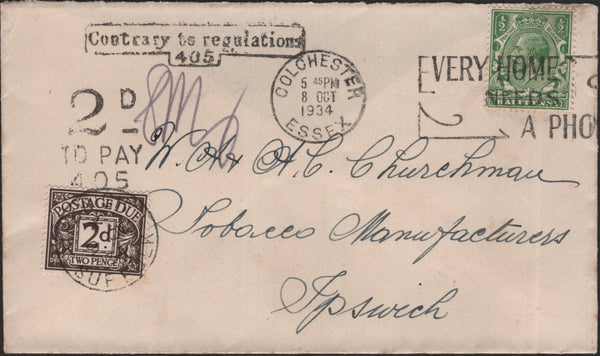 Contrary to regulations
405
2D
TO PAY
405
COLCHESTER
5 45 PM
8 OCT
1934
ESSEX
VERY HOME
A PHO
½
½
W. A & A. C. Churchman
Tobacco Manufacturers
Ipswich
POSTAGE DUE
2d
TWO PENCE
SUFFOLK